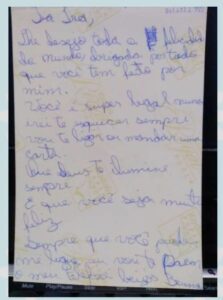 Tia Iva,
lhe desejo toda a felicidade
do mundo obrigada por tudo
que você tem feito por
mim.
Você é super legal nunca
irei te esquecer sempre
vou te ligar ou mandar uma
carta
Que deus te ilumine
sempre
E que você seja muito
feliz
Sempre que você puder
me ligue ou
o meu beijos
Play/Pause